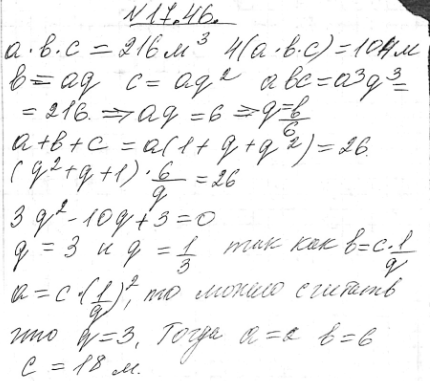 №17.46.
a·b·c = 216 м³ 4(a·b·c) = 104 м
b = aq c = aq² abc = a³q³ =
= 216. ⇒ aq = 6 ⇒ q = b/6
a+b+c = a(1+q+q²) = 26.
(q²+q+1)·6/q = 26
3q²-10q+3=0
q = 3 и q = 1/3 так как b = c·1/q
a = c·(1/q)², то можно считать
что q=3, Тогда a=a b=6
c = 18 м.